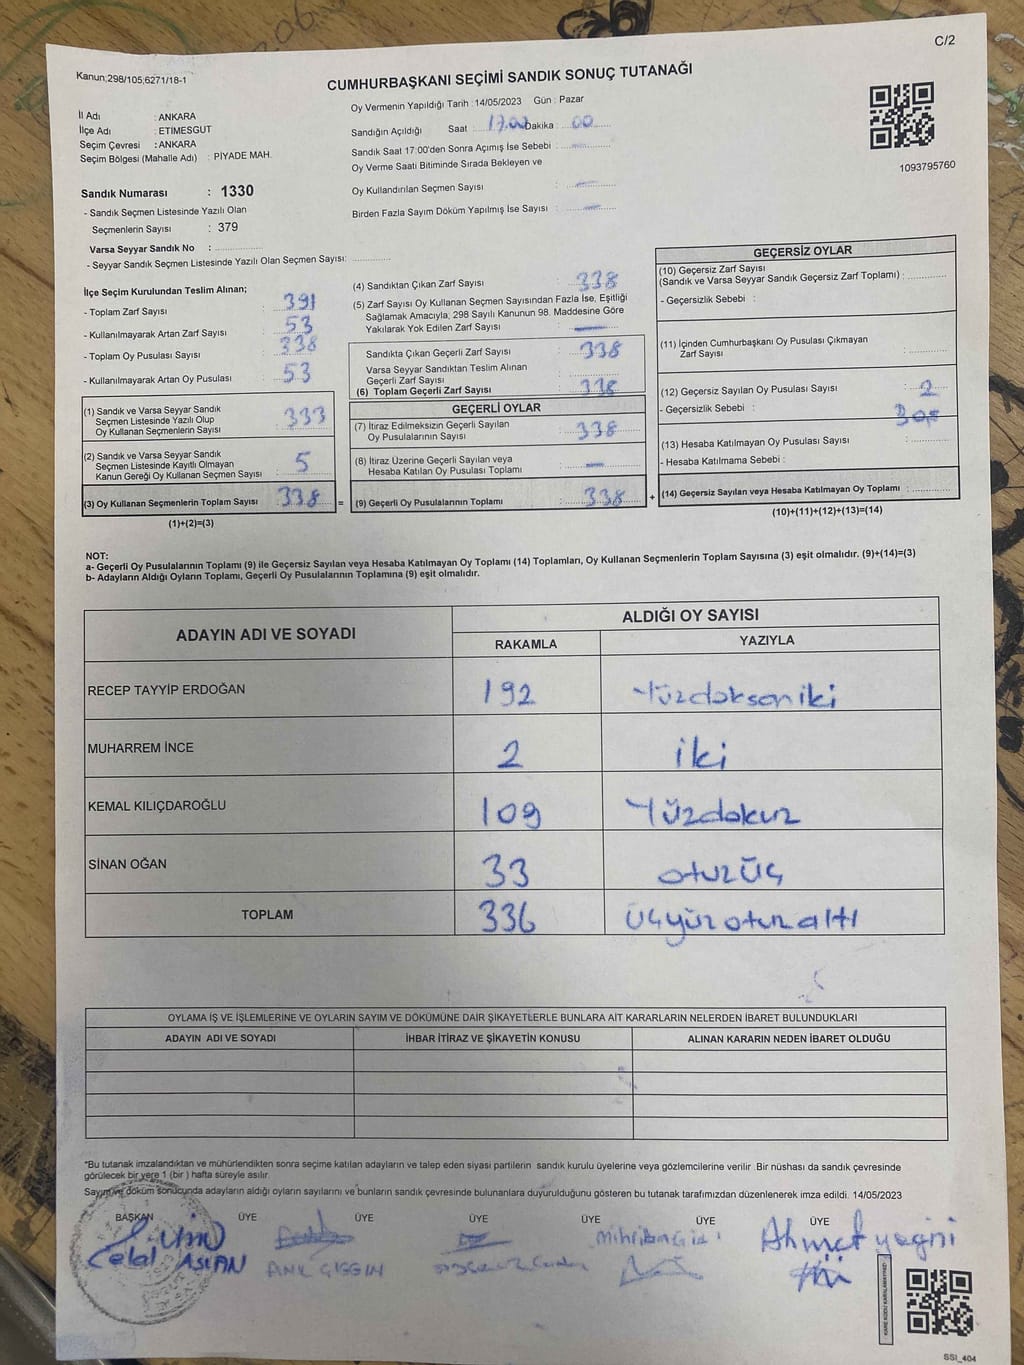 C/2
Kanun;298/105;6271/18-1
CUMHURBAŞKANI SEÇİMİ SANDIK SONUÇ TUTANAĞI
İl Adı : ANKARA
İlçe Adı : ETİMESGUT
Seçim Çevresi : ANKARA
Seçim Bölgesi (Mahalle Adı) : PİYADE MAH.
Sandık Numarası : 1330
- Sandık Seçmen Listesinde Yazılı Olan
Seçmenlerin Sayısı : 379
Varsa Seyyar Sandık No :
- Seyyar Sandık Seçmen Listesinde Yazılı Olan Seçmen Sayısı:
Oy Vermenin Yapıldığı Tarih : 14/05/2023 Gün : Pazar
Sandığın Açıldığı Saat : 17.00 Dakika : 00
Sandık Saat 17:00'den Sonra Açımış İse Sebebi : —
Oy Verme Saati Bitiminde Sırada Bekleyen ve
Oy Kullandırılan Seçmen Sayısı : —
Birden Fazla Sayım Döküm Yapılmış İse Sayısı : —
1093795760
İlçe Seçim Kurulundan Teslim Alınan;
- Toplam Zarf Sayısı : 391
- Kullanılmayarak Artan Zarf Sayısı : 53
- Toplam Oy Pusulası Sayısı : 338
- Kullanılmayarak Artan Oy Pusulası : 53
(1) Sandık ve Varsa Seyyar Sandık
Seçmen Listesinde Yazılı Olup
Oy Kullanan Seçmenlerin Sayısı : 333
(2) Sandık ve Varsa Seyyar Sandık
Seçmen Listesinde Kayıtlı Olmayan
Kanun Gereği Oy Kullanan Seçmen Sayısı : 5
(3) Oy Kullanan Seçmenlerin Toplam Sayısı : 338 =
(1)+(2)=(3)
(4) Sandıktan Çıkan Zarf Sayısı : 338
(5) Zarf Sayısı Oy Kullanan Seçmen Sayısından Fazla İse, Eşitliği
Sağlamak Amacıyla, 298 Sayılı Kanunun 98. Maddesine Göre
Yakılarak Yok Edilen Zarf Sayısı : —
Sandıkta Çıkan Geçerli Zarf Sayısı : 338
Varsa Seyyar Sandıktan Teslim Alınan
Geçerli Zarf Sayısı :
(6) Toplam Geçerli Zarf Sayısı : 338
GEÇERLİ OYLAR
(7) İtiraz Edilmeksizin Geçerli Sayılan
Oy Pusulalarının Sayısı : 338
(8) İtiraz Üzerine Geçerli Sayılan veya
Hesaba Katılan Oy Pusulası Toplamı : —
(9) Geçerli Oy Pusulalarının Toplamı : 338 +
GEÇERSİZ OYLAR
(10) Geçersiz Zarf Sayısı
(Sandık ve Varsa Seyyar Sandık Geçersiz Zarf Toplamı) :
- Geçersizlik Sebebi :
(11) İçinden Cumhurbaşkanı Oy Pusulası Çıkmayan
Zarf Sayısı :
(12) Geçersiz Sayılan Oy Pusulası Sayısı : 2
- Geçersizlik Sebebi : Boş
(13) Hesaba Katılmayan Oy Pusulası Sayısı :
- Hesaba Katılmama Sebebi :
(14) Geçersiz Sayılan veya Hesaba Katılmayan Oy Toplamı :
(10)+(11)+(12)+(13)=(14)
NOT:
a- Geçerli Oy Pusulalarının Toplamı (9) ile Geçersiz Sayılan veya Hesaba Katılmayan Oy Toplamı (14) Toplamları, Oy Kullanan Seçmenlerin Toplam Sayısına (3) eşit olmalıdır. (9)+(14)=(3)
b- Adayların Aldığı Oyların Toplamı, Geçerli Oy Pusulalarının Toplamına (9) eşit olmalıdır.
ADAYIN ADI VE SOYADI ALDIĞI OY SAYISI
RAKAMLA YAZIYLA
RECEP TAYYİP ERDOĞAN 192 Yüzdoksaniki
MUHARREM İNCE 2 iki
KEMAL KILIÇDAROĞLU 109 Yüzdokuz
SİNAN OĞAN 33 otuzüç
TOPLAM 336 üçyüzotuzaltı
OYLAMA İŞ VE İŞLEMLERİNE VE OYLARIN SAYIM VE DÖKÜMÜNE DAİR ŞİKAYETLERLE BUNLARA AİT KARARLARIN NELERDEN İBARET BULUNDUKLARI
ADAYIN ADI VE SOYADI İHBAR İTİRAZ VE ŞİKAYETİN KONUSU ALINAN KARARIN NEDEN İBARET OLDUĞU
*Bu tutanak imzalandıktan ve mühürlendikten sonra seçime katılan adayların ve talep eden siyasi partilerin sandık kurulu üyelerine veya gözlemcilerine verilir .Bir nüshası da sandık çevresinde
görülecek bir yere 1 (bir ) hafta süreyle asılır.
Sayım ve döküm sonucunda adayların aldığı oyların sayılarını ve bunların sandık çevresinde bulunanlara duyurulduğunu gösteren bu tutanak tarafımızdan düzenlenerek imza edildi. 14/05/2023
BAŞKAN ÜYE ÜYE ÜYE ÜYE ÜYE ÜYE
Celal ASLAN
Ahmet
SSI_404